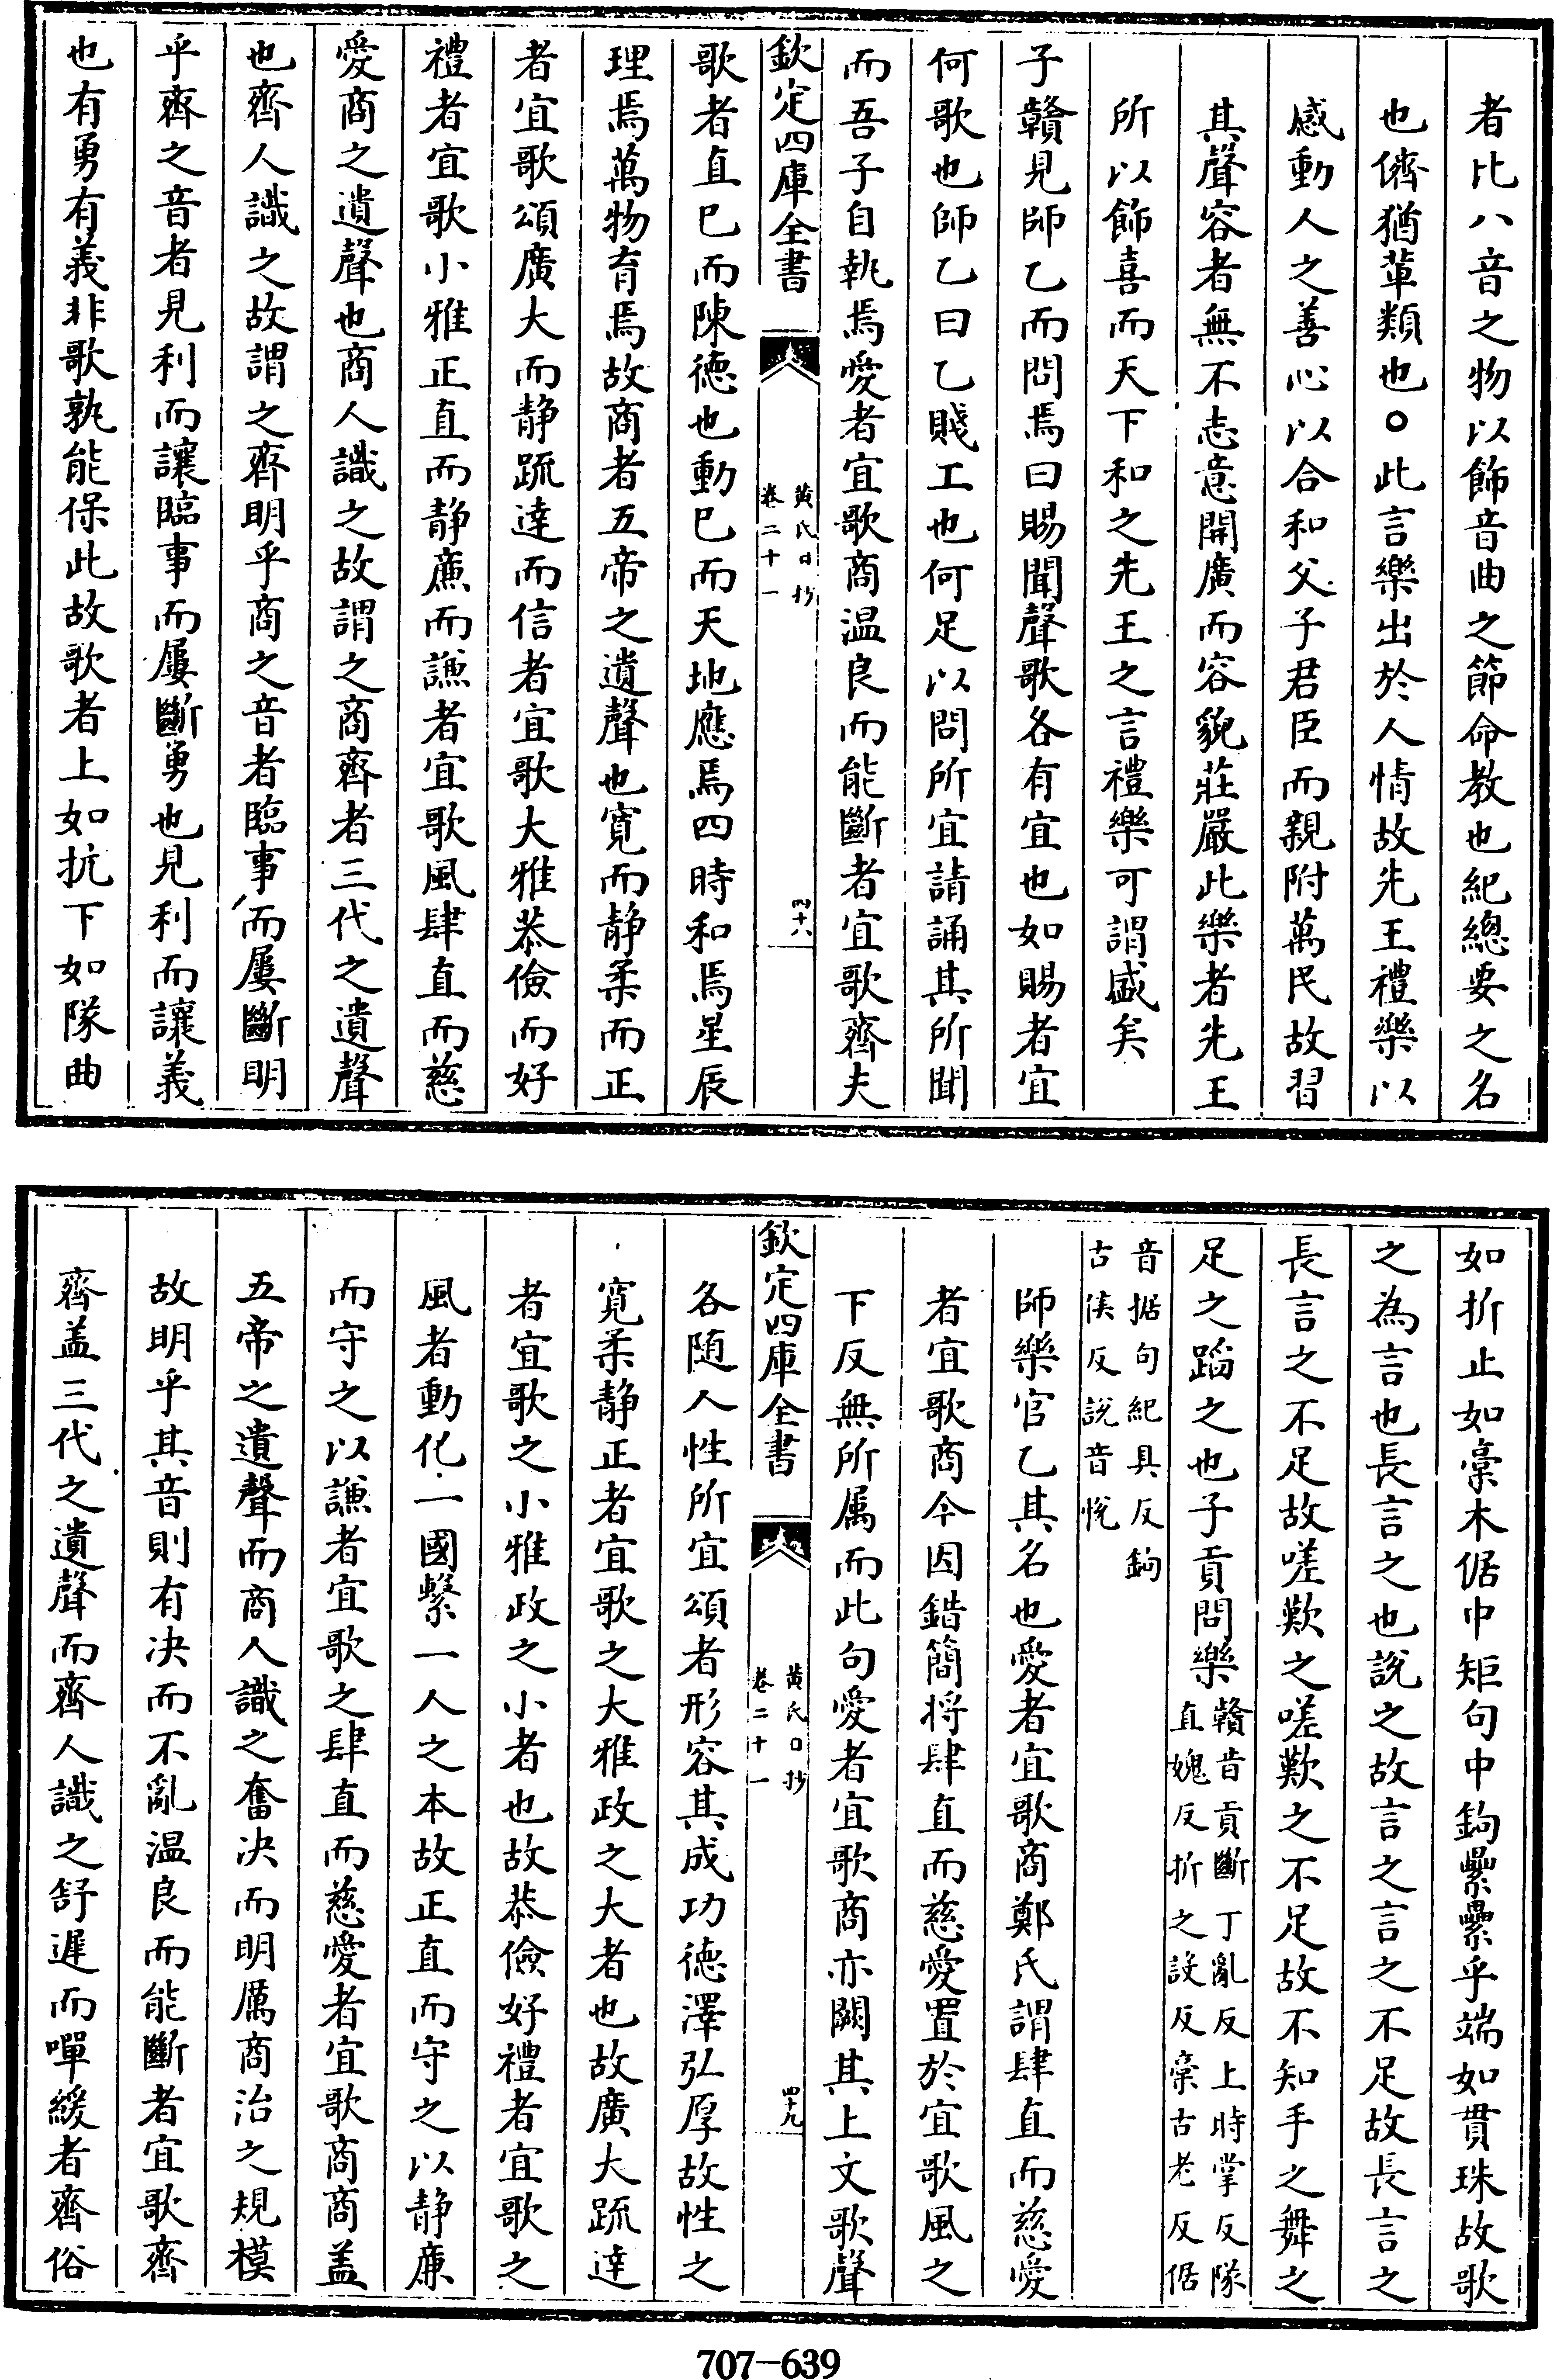 者比八音之物以飾音曲之節命教也紀總要之名
也儕猶輩類也○此言樂出於人情故先王禮樂以
感動人之善心以合和父子君臣而親附萬民故習
其聲容者無不志意開廣而容貌莊嚴此樂者先王
所以飾喜而天下和之先王之言禮樂可謂盛矣
子贛見師乙而問焉曰賜聞聲歌各有宜也如賜者宜
何歌也師乙曰乙賤工也何足以問所宜請誦其所聞
而吾子自執焉愛者宜歌商温良而能斷者宜歌齊夫
欽定四庫全書
黄氏日抄
卷二十一
四十八
歌者直已而陳德也動已而天地應焉四時和焉星辰
理焉萬物育焉故商者五帝之遺聲也寛而静柔而正
者宜歌頌廣大而静疏達而信者宜歌大雅恭儉而好
禮者宜歌小雅正直而静廉而謙者宜歌風肆直而慈
愛商之遺聲也商人識之故謂之商齊者三代之遺聲
也齊人識之故謂之齊明乎商之音者臨事而屢斷明
乎齊之音者見利而讓臨事而屢斷勇也見利而讓義
也有勇有義非歌孰能保此故歌者上如抗下如隊曲
如折止如槀木倨中矩句中鉤纍纍乎端如貫珠故歌
之為言也長言之也説之故言之言之不足故長言之
長言之不足故嗟歎之嗟歎之不足故不知手之舞之
足之蹈之也子貢問樂
贛音貢斷丁亂反上時掌反隊
直媿反折之設反槀古老反倨
音据句紀具反鉤
古侯反說音悅
師樂官乙其名也愛者宜歌商鄭氏謂肆直而慈愛
者宜歌商今因錯簡將肆直而慈愛置於宜歌風之
下反無所属而此句愛者宜歌商亦闕其上文歌聲
欽定四庫全書
黄氏日抄
卷二十一
四十九
各随人性所宜頌者形容其成功德澤弘厚故性之
寛柔静正者宜歌之大雅政之大者也故廣大疏達
者宜歌之小雅政之小者也故恭儉好禮者宜歌之
風者動化一國繫一人之本故正直而守之以静廉
而守之以謙者宜歌之肆直而慈愛者宜歌商商盖
五帝之遺聲而商人識之奮决而明厲商治之規模
故明乎其音則有决而不亂温良而能斷者宜歌齊
齊盖三代之遺聲而齊人識之舒遲而嘽緩者齊俗
707—639